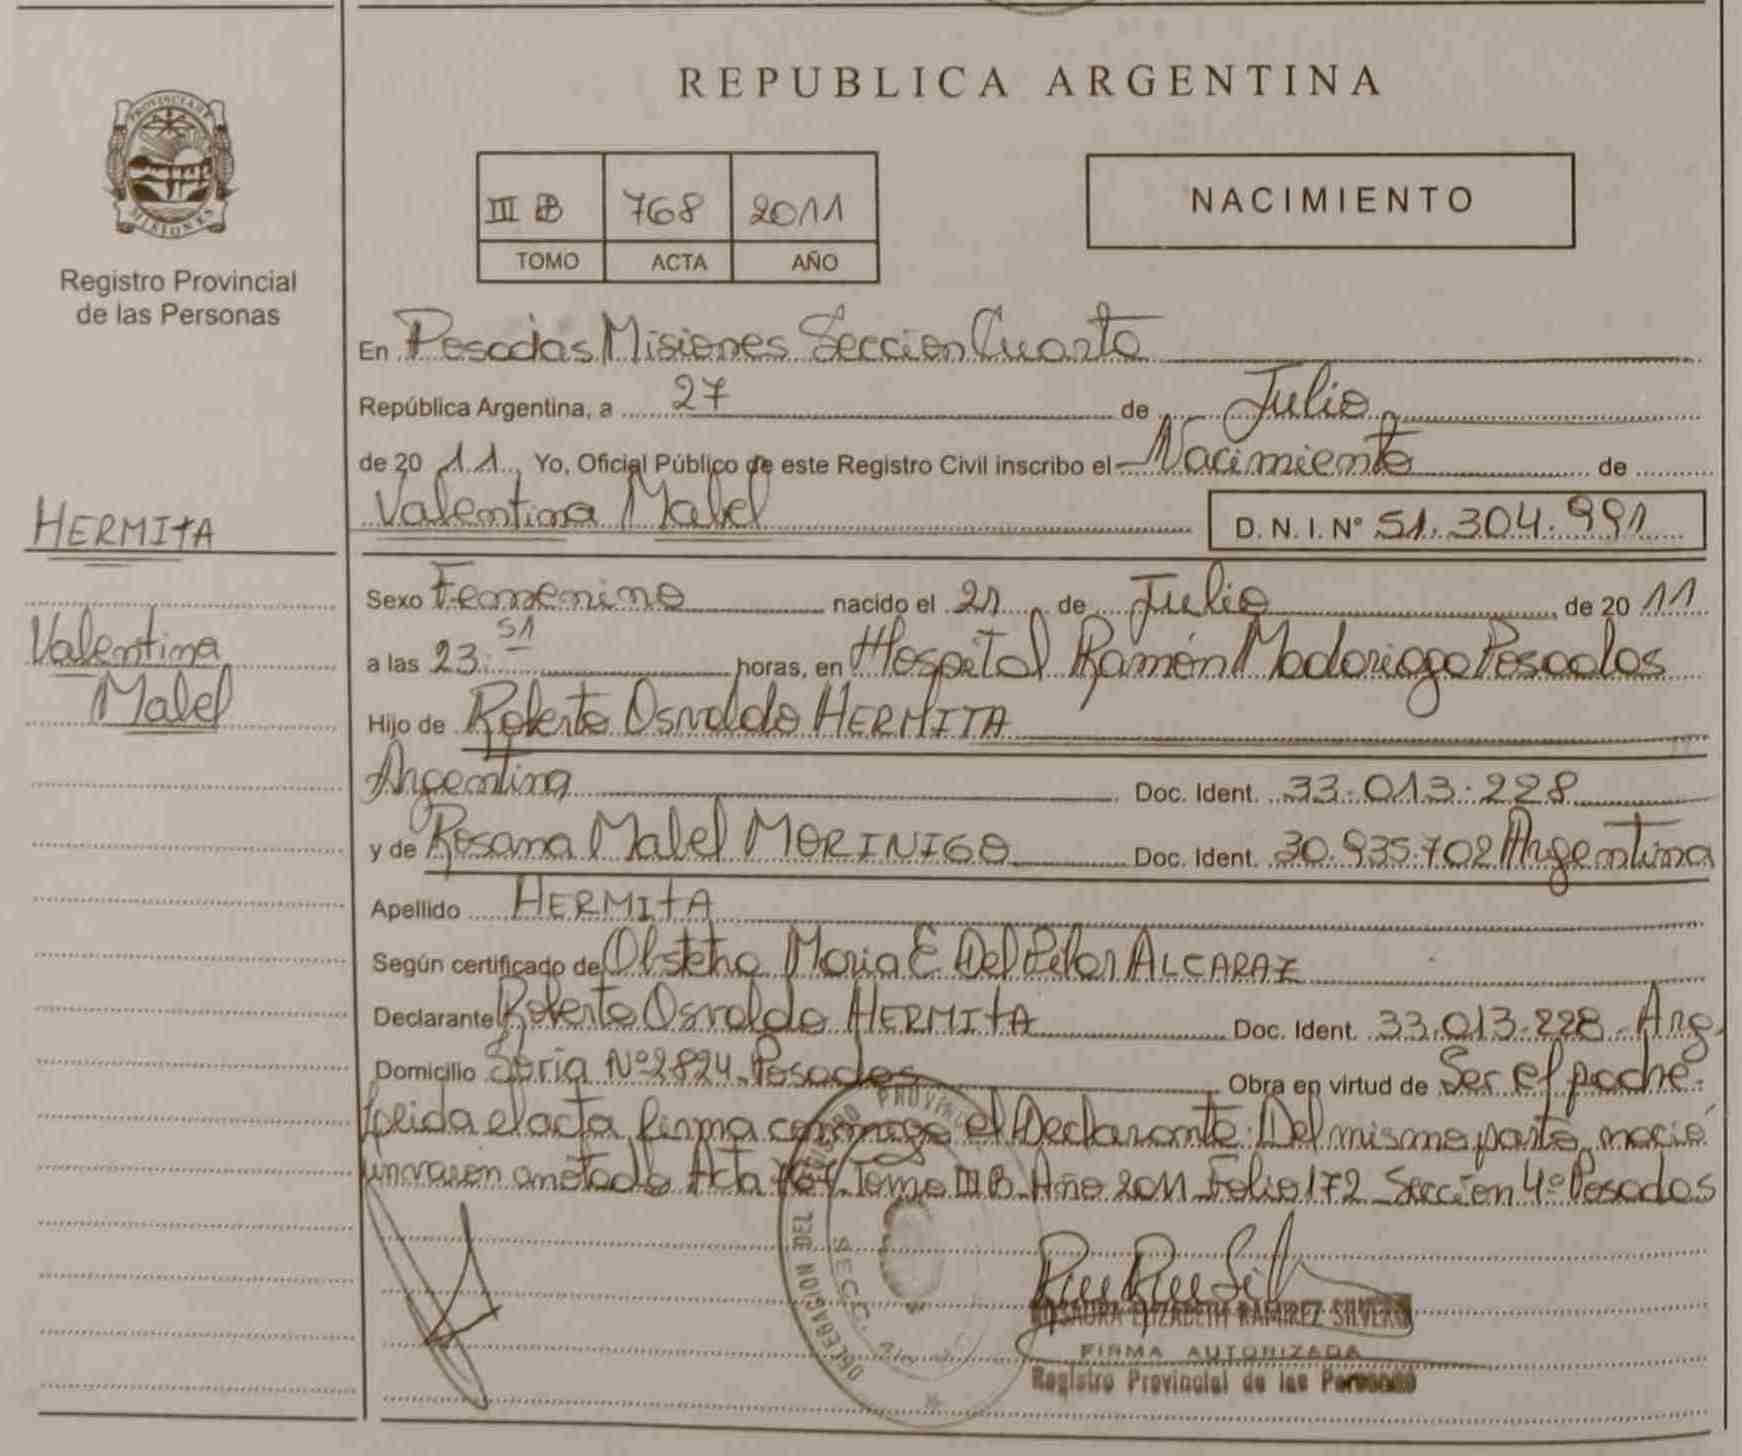 REPUBLICA ARGENTINA
PROVINCIA DE MISIONES
Registro Provincial
de las Personas
III B 768 2011
TOMO ACTA AÑO
NACIMIENTO
En Posadas Misiones Seccion Cuarta
República Argentina, a 27 de Julio
de 2011 Yo, Oficial Público de este Registro Civil inscribo el Nacimiento de
Valentina Mabel D. N. I. Nº 51.304.991
HERMITA
Valentina
Mabel
Sexo Femenino nacido el 21 de Julio de 2011
a las 23:51 horas, en Hospital Ramón Madariaga Posadas
Hijo de Roberto Osvaldo HERMITA
Argentina Doc. Ident. 33.013.228
y de Rosana Mabel MORINIGO Doc. Ident. 30.935.702 Argentina
Apellido HERMITA
Según certificado de Obstetra Maria E Del Pilar ALCARAZ
Declarante Roberto Osvaldo HERMITA Doc. Ident. 33.013.228 - Arg.
Domicilio Soria Nº 2824 Posadas Obra en virtud de Ser el padre.
Leida el acta firma conmigo el Declarante. Del mismo parto nació
un varon anotado Acta Tomo III B Año 2011 Folio 172 Seccion 4º Posadas
DELEGACION DEL REGISTRO PROVINCIAL
SECC.
ROSAURA ELIZABETH RAMIREZ SILVERO
FIRMA AUTORIZADA
Registro Provincial de las Personas